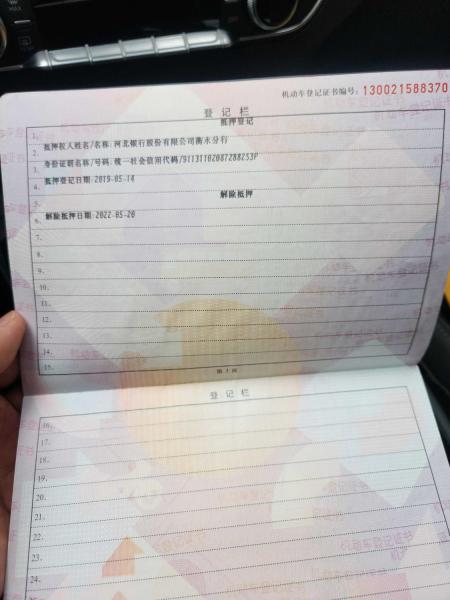 机动车登记证书编号：130021588370
登记栏
1. 抵押登记
2. 抵押权人姓名/名称:河北银行股份有限公司衡水分行
3. 身份证明名称/号码:统一社会信用代码/91131102087288253P
4. 抵押登记日期:2019-05-14
5. 解除抵押
6. 解除抵押日期:2022-05-20
7.
8.
9.
10.
11.
12.
13.
14.
15.
第 3 页
登记栏
16.
17.
18.
19.
20.
21.
22.
23.
24.